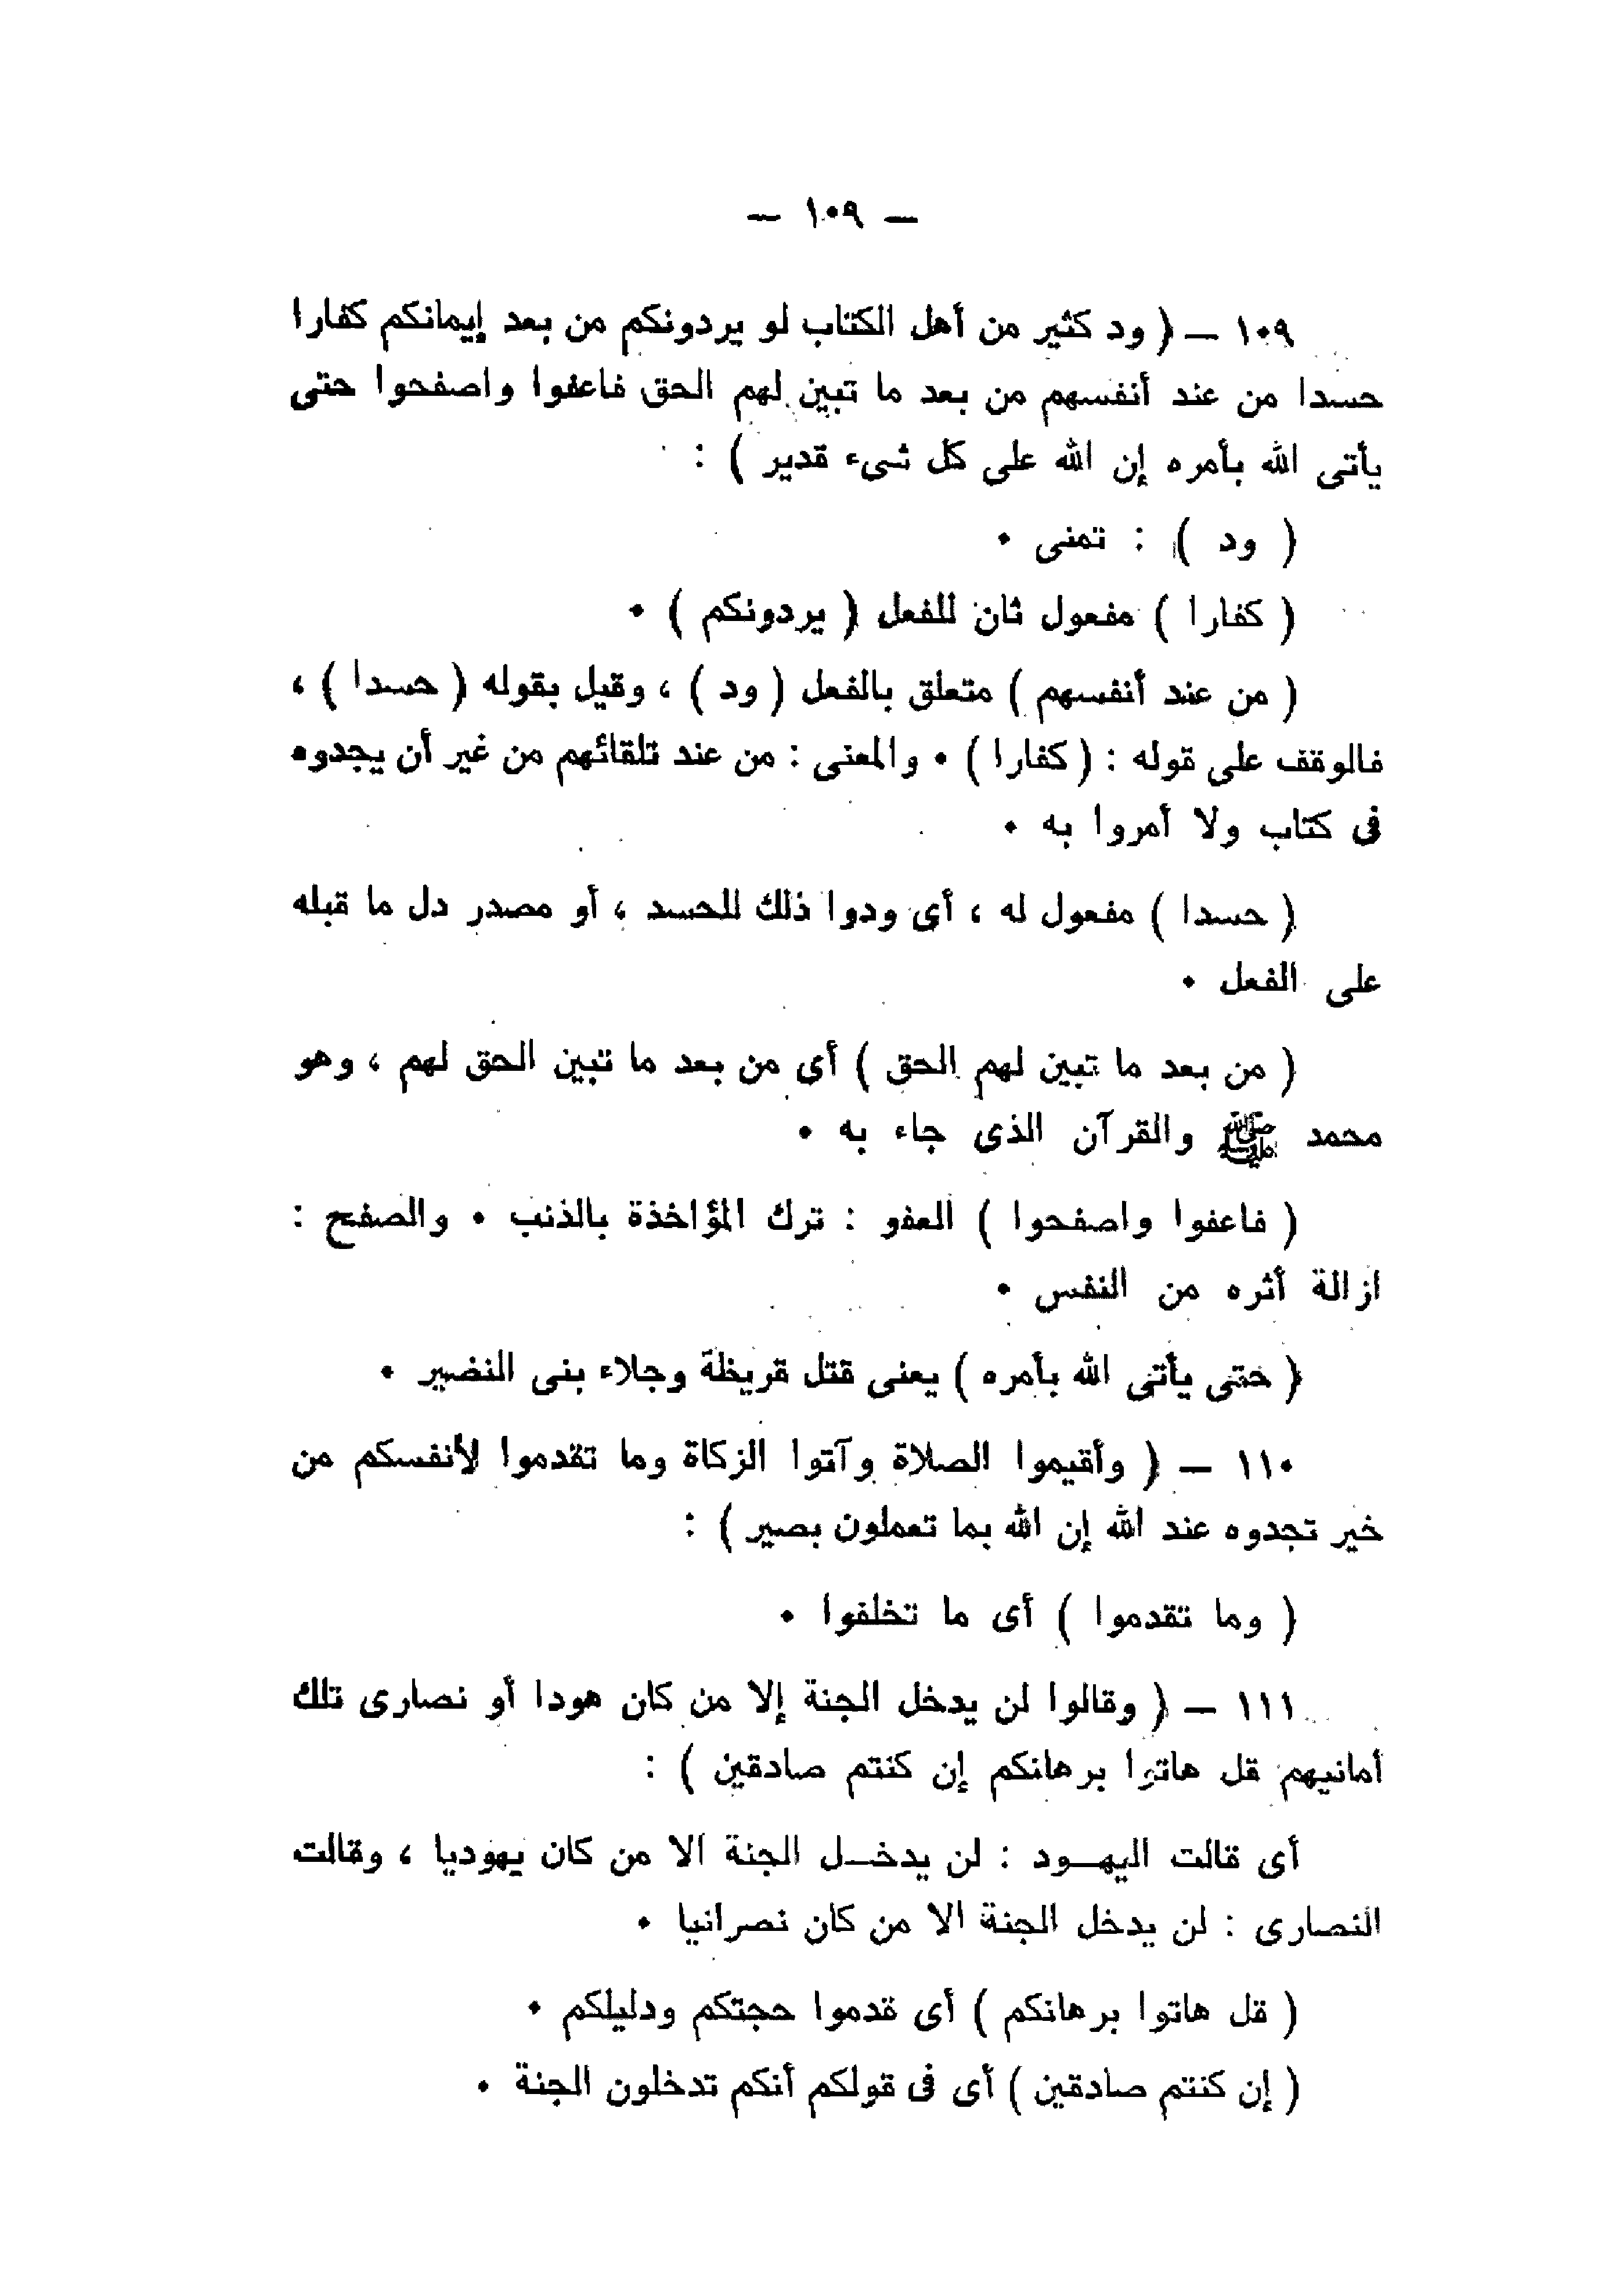 — ١٠٩ —
١٠٩ — ( ود كثير من أهل الكتاب لو يردونكم من بعد إيمانكم كفارا
حسدا من عند أنفسهم من بعد ما تبين لهم الحق فاعفوا واصفحوا حتى
يأتى الله بأمره إن الله على كل شىء قدير ) :
( ود ) : تمنى ٠
( كفارا ) مفعول ثان للفعل ( يردونكم ) ٠
( من عند أنفسهم ) متعلق بالفعل ( ود ) ، وقيل بقوله ( حسدا ) ،
فالوقف على قوله : ( كفارا ) ٠ والمعنى : من عند تلقائهم من غير أن يجدوه
فى كتاب ولا أمروا به ٠
( حسدا ) مفعول له ، أى ودوا ذلك للحسد ، أو مصدر دل ما قبله
على الفعل ٠
( من بعد ما تبين لهم الحق ) أى من بعد ما تبين الحق لهم ، وهو
محمد ﷺ والقرآن الذى جاء به ٠
( فاعفوا واصفحوا ) العفو : ترك المؤاخذة بالذنب ٠ والصفح :
ازالة أثره من النفس ٠
( حتى يأتى الله بأمره ) يعنى قتل قريظة وجلاء بنى النضير ٠
١١٠ — ( وأقيموا الصلاة وآتوا الزكاة وما تقدموا لأنفسكم من
خير تجدوه عند الله إن الله بما تعملون بصير ) :
( وما تقدموا ) أى ما تخلفوا ٠
١١١ — ( وقالوا لن يدخل الجنة إلا من كان هودا أو نصارى تلك
أمانيهم قل هاتوا برهانكم إن كنتم صادقين ) :
أى قالت اليهـــود : لن يدخــل الجنة الا من كان يهوديا ، وقالت
النصارى : لن يدخل الجنة الا من كان نصرانيا ٠
( قل هاتوا برهانكم ) أى قدموا حجتكم ودليلكم ٠
( إن كنتم صادقين ) أى فى قولكم أنكم تدخلون الجنة ٠